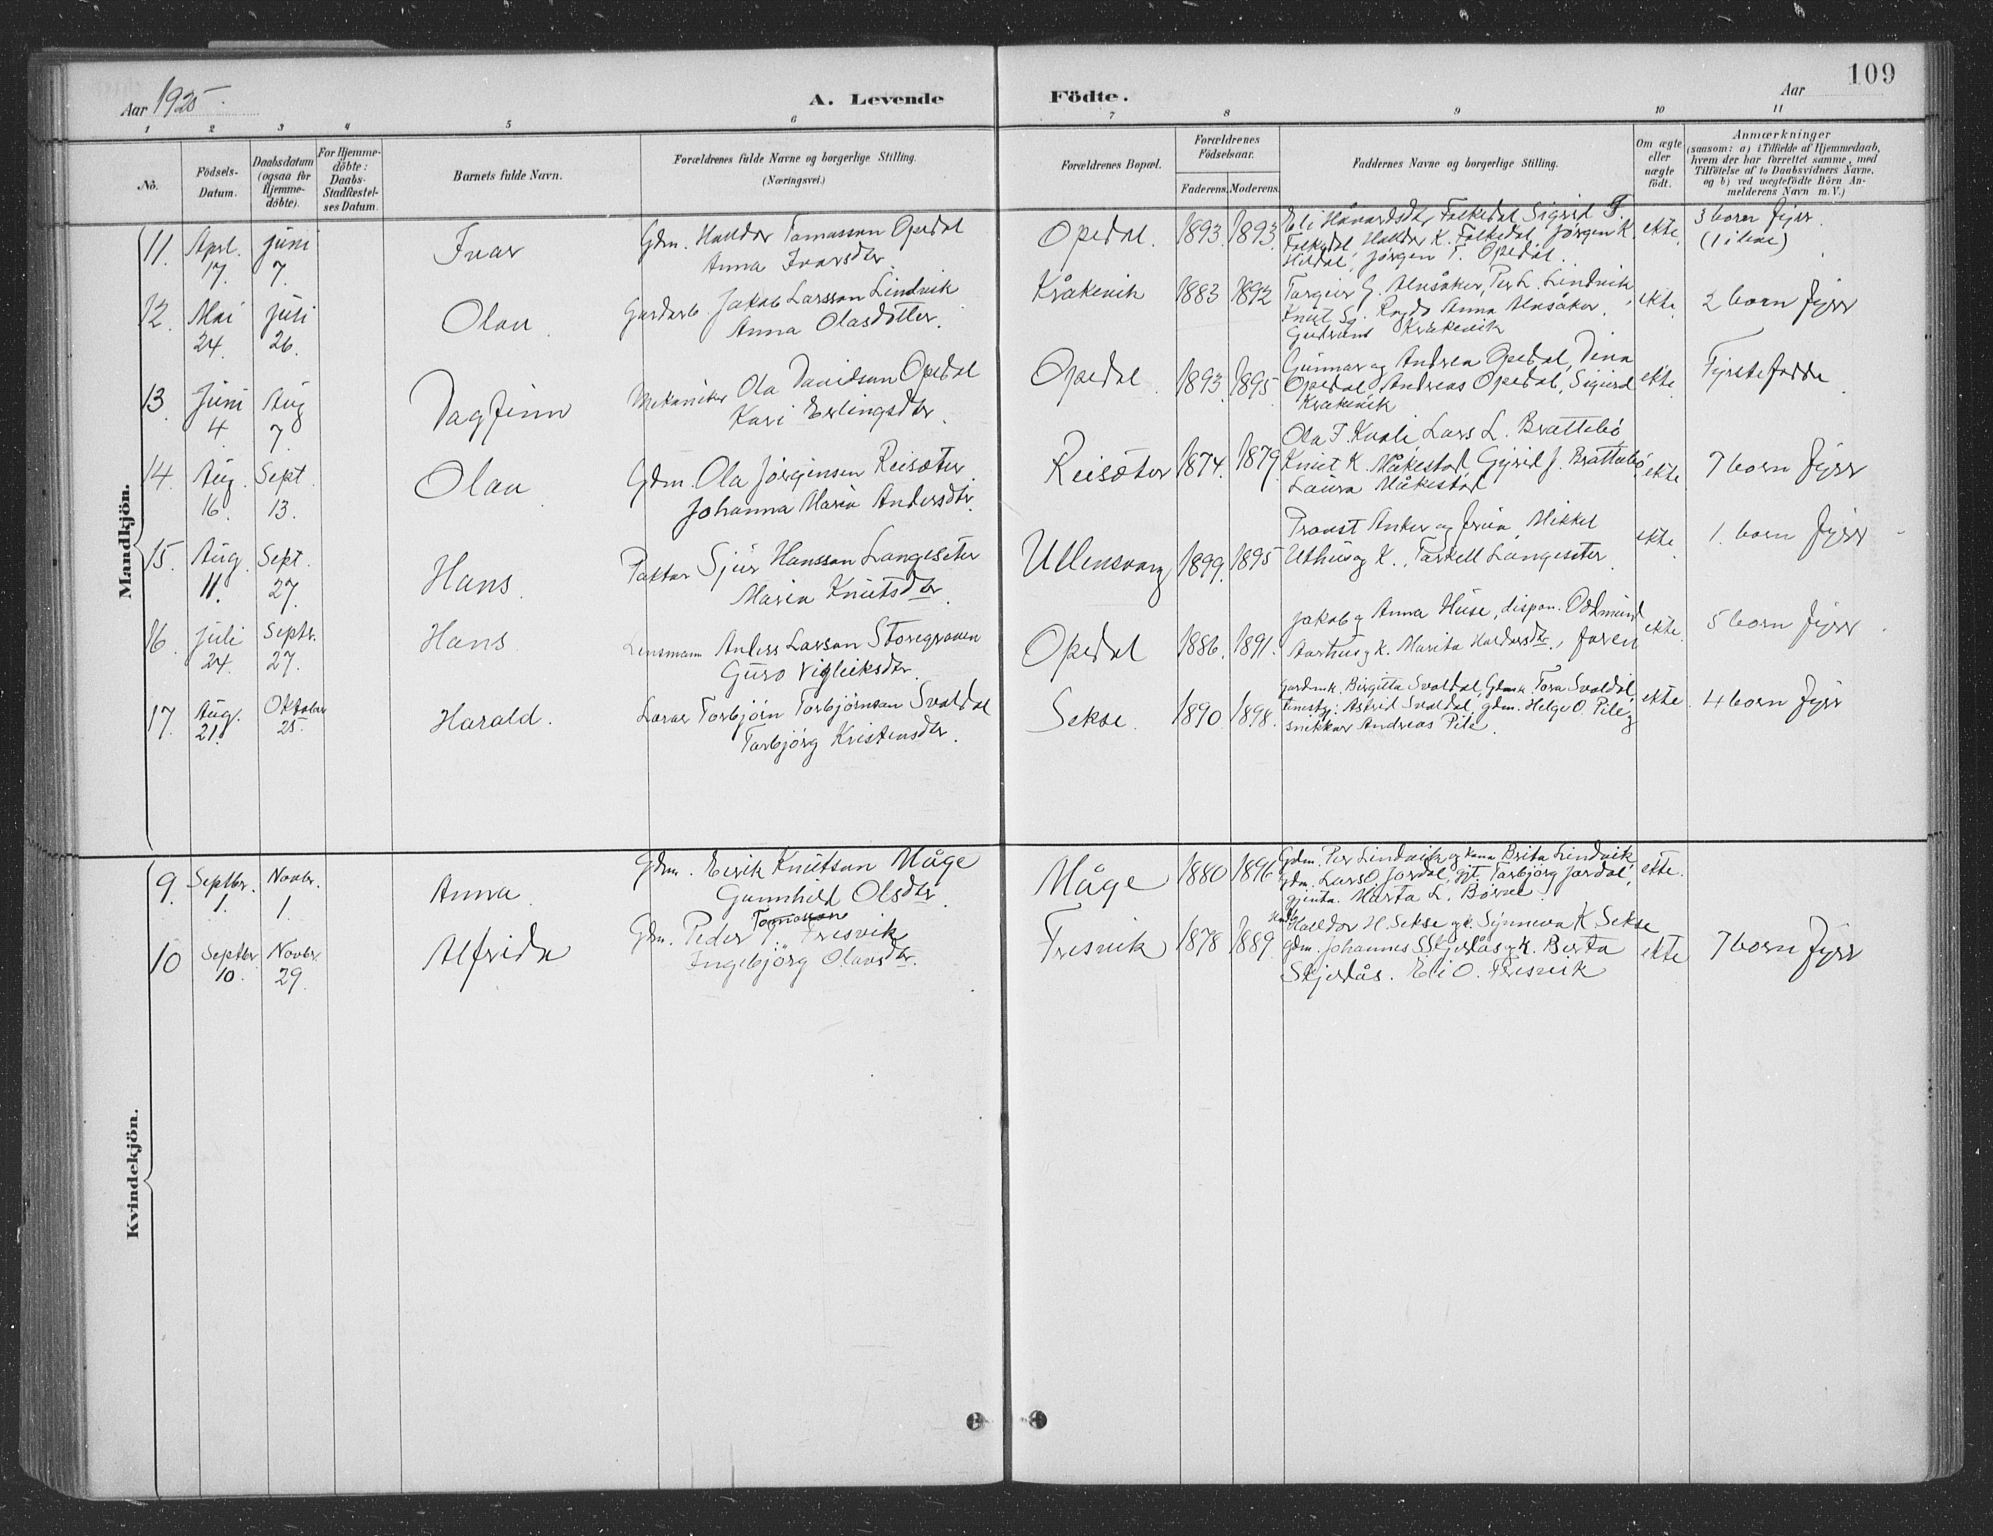 109
Aar 1925.
A. Levende Födte.
Aar
1 2 3 4 5 6 7 8 9 10 11
No.
Födsels-Datum.
Daabsdatum (ogsaa for Hjemme-döbte).
For Hjemme-döbte: Daabs-Stadfæstel-ses Datum.
Barnets fulde Navn.
Forældrenes fulde Navne og borgerlige Stilling.
(Næringsvei.)
Forældrenes Bopæl.
Forældrenes Födselsaar.
Faderens. Moderens.
Faddernes Navne og borgerlige Stilling.
Om ægte eller uægte födt.
Anmærkninger
(saasom: a) i Tilfælde af Hjemmedaab,
hvem der har forrettet samme, med
Tilföielse af to Daabsvidners Navne,
og b) ved uægtefödte Börn An-
melderens Navn m. V.)
Mandkjön.
11. Apri. 17. juni 7. Ivar
Gdm. Halldor Tomasson Opedal
Anna Ivarsdtr.
Opedal. 1893. 1893.
Eli Håvardsdtr Folkedal, Sigrid
Folkedal, Halldor K. Folkedal, Jørgen K.
Hildal, Jørgen T. Opedal.
ekte.
3 born fyrr.
12. Mai 24. juli 26. Olav
Gardarb. Jakob Larsson Lindvik
Anna Olasdotter.
Kråkevik 1883 1892
Torgier G. Alnsåker, Per L. Lindvik,
Knut S. Anna Alnsåker.
Kråkevik
ekte.
2 born fyrr
13. Juni 4. Aug 7. Dagfinn
Mekaniker Ola Davidson Opedal
Kari Erlingsdtr.
Opedal 1893. 1895.
Gunnar og Andrea Opedal, Dina
Opedal, Andreas Opedal, Sigurd
Kråkevik
ekte
Fyrstefødde
14. Aug. 16. Sept. 13. Olav
Gdm. Ola Jørgensen Reisæter
Johanna Maria Andersdtr.
Reisæter 1874. 1879.
Ola T. Kvale, Lars L. Brattebö
Knut K. Måkestad, Gyrid J. Brattebö,
Laura Måkestad
ekte
7 born fyrr
15. Aug. 11. Sept. 27. Hans
Faktor Sjur Hansson Langeseter
Maria Knutsdtr.
Ullensvang 1899. 1895
Provst Anker og frua, Mikkel
Uthus og K., Torkell Langeseter.
ekte.
1. born fyrr
16. juli 24. Septr. 27. Hans
Lensmann Anders Larson Storegraven
Guro Vigleiksdtr.
Opedal 1886. 1891.
Jakob og Anna Huse, dispon. Oddmund
Aarhus og k. Marita Haldorsdtr.,
ekte.
5 born fyrr
17. Aug. 21. Oktober 25. Harald.
Lærar Torbjörn Torbjörnson Svaldal
Torbjörg Kristensdtr.
Sekse. 1890. 1898.
Gardmk. Birgitta Svaldal, Gdmk. Tora Svaldal,
Astrid Svaldal, gdm. Helge O. Pile og
snikkar Andreas Pile.
ekte.
4 born fyrr
Kvindekjön.
9. Septbr. 1. Novbr. 1. Anna.
Gdm. Eirik Knutson Måge
Gunnhild Olsdtr.
Måge 1880 1896
Gdm. Per Lindvik og kona Brita Lindvik,
gdm. Lars O. Jordal, gjt. Torbjörg Jordal,
gjenta. Marta L. Börve.
ekte.
10 Septbr. 10. Novbr. 29. Alfrida
Gdm. Peder Tomasson Fresvik
Ingebjörg Olavsdtr.
Fresvik 1878 1889.
Halldor H. Sekse og k. Synneva K. Sekse
gdm. Johannes S. Skjerdås og k. Berta
Skjerdås. Eli O. Fresvik
ekte
7 born fyrr